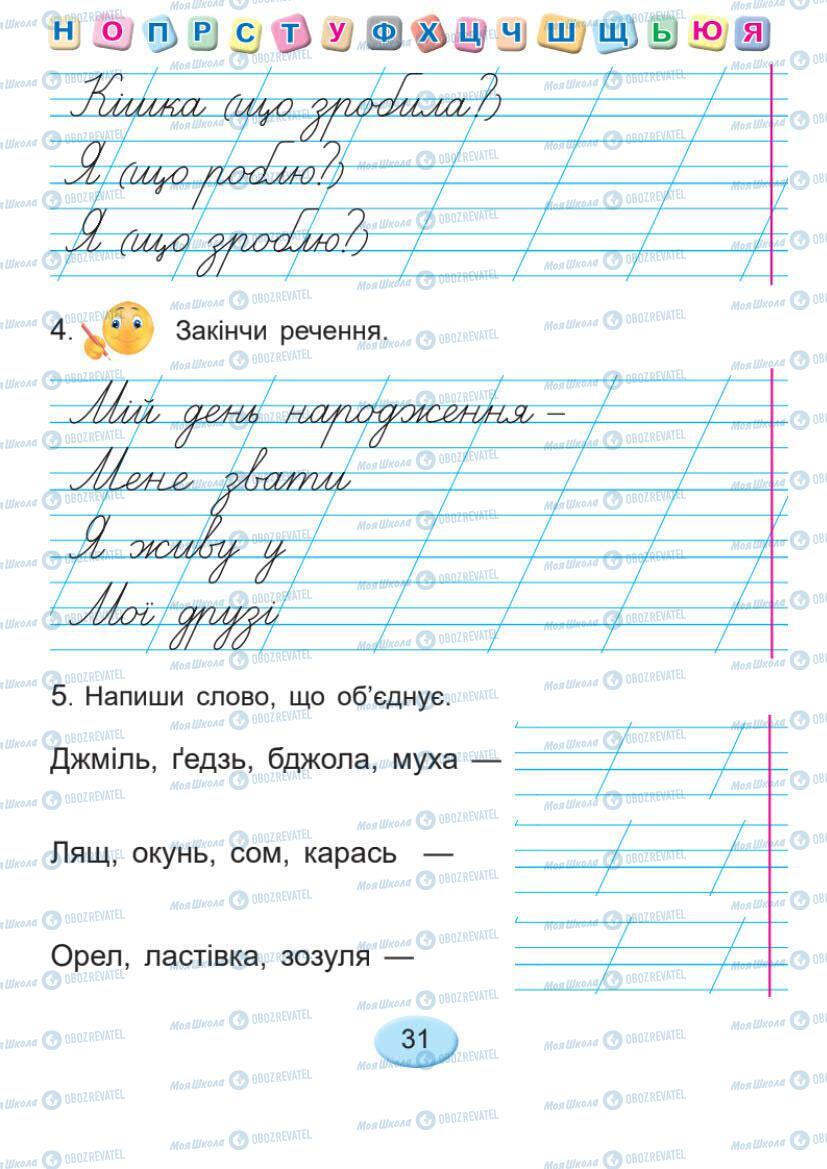 Н О П Р С Т У Ф Х Ц Ч Ш Щ Ь Ю Я
Кішка (що зробила?)
Я (що роблю?)
Я (що зроблю?)
4. Закінчи речення.
Мій день народження –
Мене звати
Я живу у
Мої друзі
5. Напиши слово, що об’єднує.
Джміль, ґедзь, бджола, муха —
Лящ, окунь, сом, карась —
Орел, ластівка, зозуля —
31